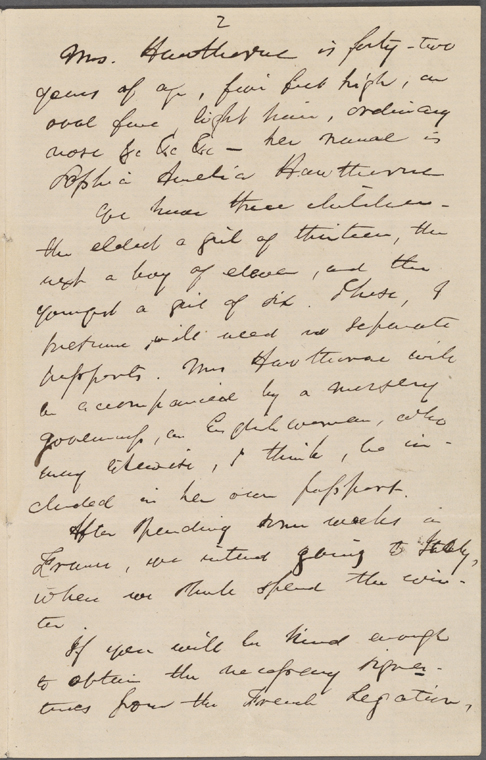 2
Mrs. Hawthorne is forty-two
years of age, five feet high, an
oval face light hair, ordinary
nose &c &c &c — her name is
Sophia Amelia Hawthorne
We have three children —
the eldest a girl of thirteen, the
next a boy of eleven, and the
youngest a girl of six. These, I
presume, will need no separate
passports. Mrs Hawthorne will
be accompanied by a nursery
governess, an Englishwoman, who
may likewise, I think, be in-
cluded in her own passport.
After spending some weeks in
France, we intend going to Italy,
where we shall spend the win-
ter.
If you will be kind enough
to obtain the necessary signa-
tures from the French Legation,